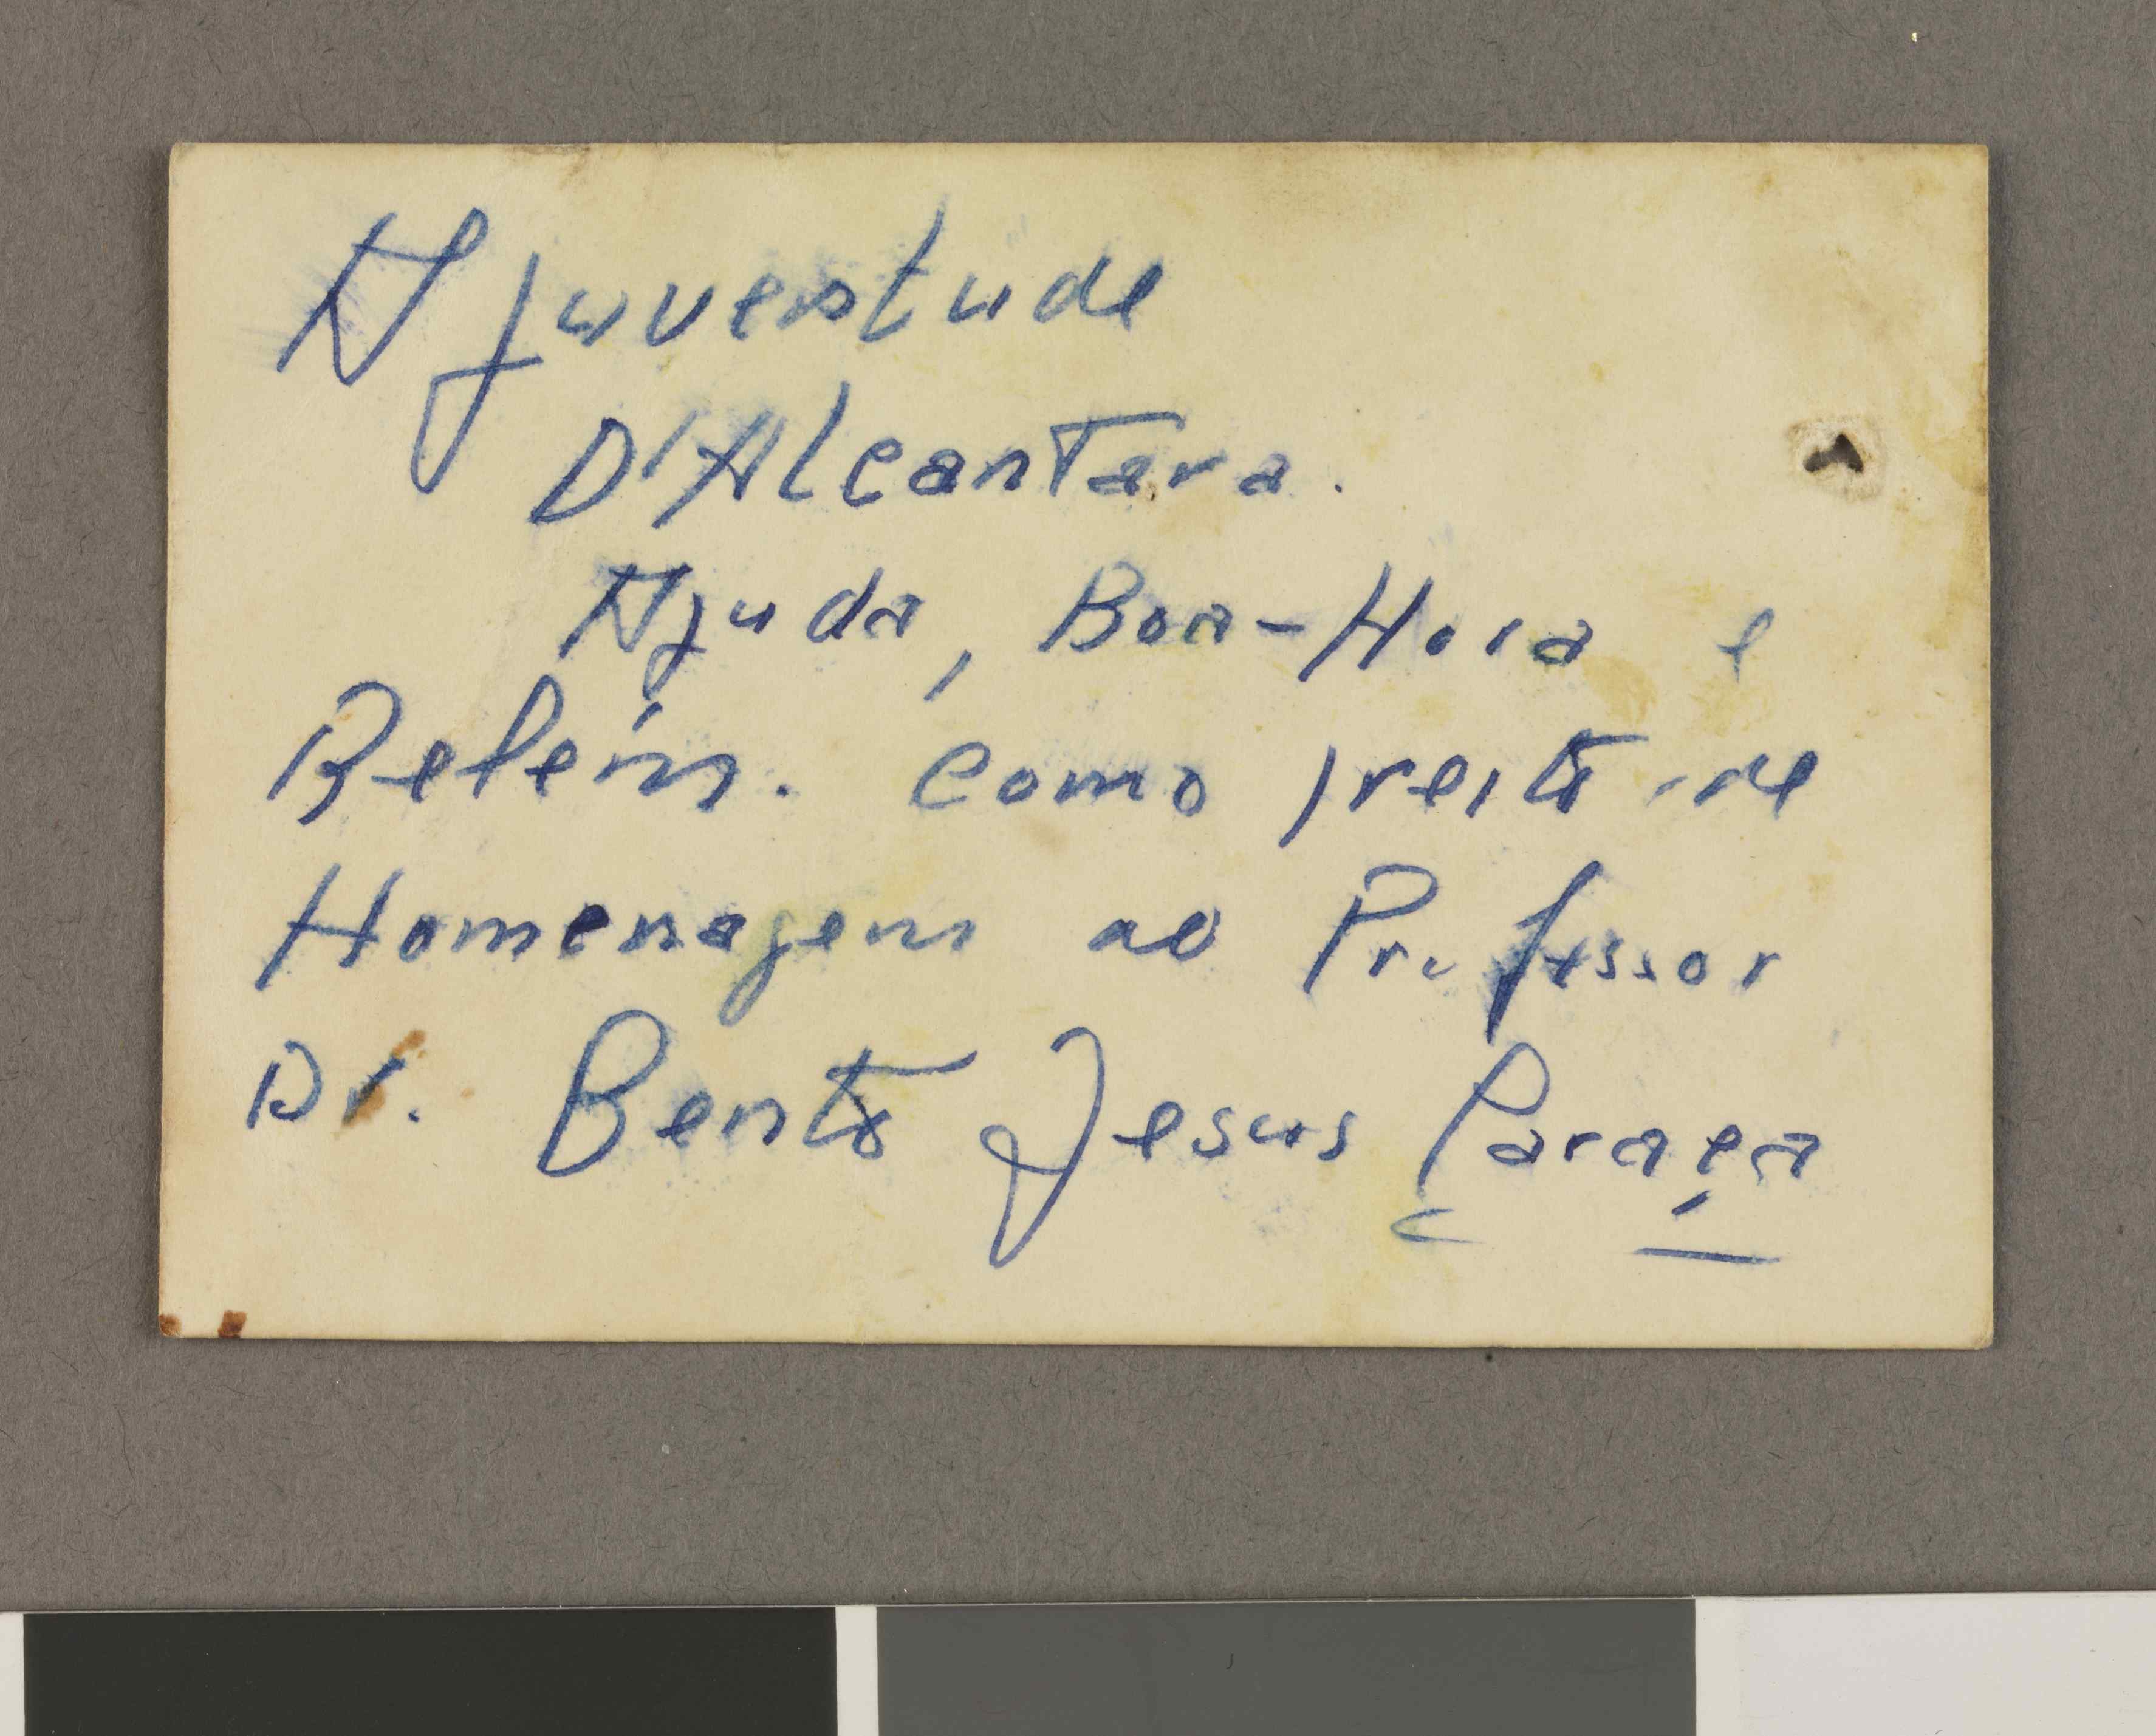 A juventude
D'Alcantara.
Ajuda, Boa-Hora e
Belém. Como preito de
Homenagem ao Professor
Dr. Bento Jesus Caraça